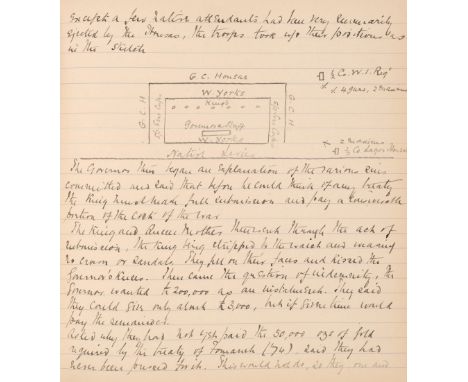 except a few native attendants had been very summarily
ejected by the Housas, the troops took up their positions as
in the sketch
G. C. Housas
W. Yorks
Kings
Governor Staff
W. Yorks
Native Levies
G C H
G C H
½ Co. W. I. Regt
4 guns, 2 maxims
2 maxims
½ Co Lagos Housas
The Governor then began an explanation of the various
committed and said that before he could think of any treaty
the King must make full submission and pay a considerable
portion of the cost of the war
The King and Queen Mother then went through the act of
submission, the King being stripped to the waist and wearing
no crown or sandals. They fell on their faces and kissed the
Governor's knees. Then came the question of indemnity, the
Governor wanted £200,000 as an instalment. They said
they could give only about £3,000, but if given time would
pay the remainder.
Asked why they had not yet paid the 50,000 ozs of gold
required by the treaty of Fomanah (/74), said they had
never been pressed for it. This would not do, so they one and